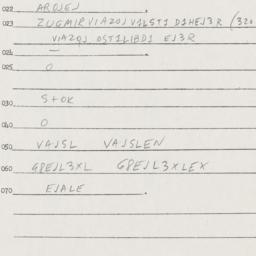 022 AROJEJ
023 ZUGMIRVIAZOJ V1LSTI D1HEJ3R (320
VIAZOJ OST1LIBD1 EJ3R
024 —
025 O
030 STOK
040 O
050 VAJSL VAJSLEN
060 G8EJL3XL G8EJL3XLEX
070 EJALE